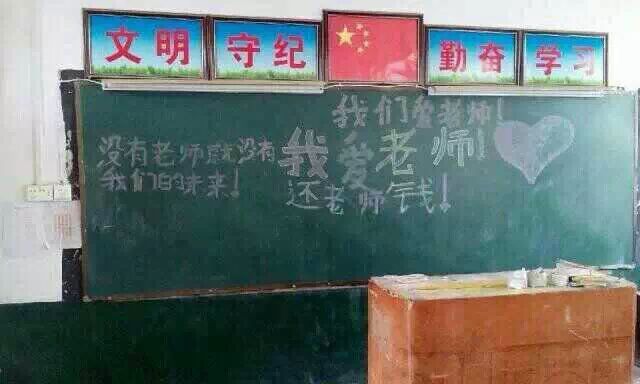 文明 守纪 勤奋 学习
我们爱老师!
没有老师就没有
我们的未来!
我爱老师!
还老师钱!